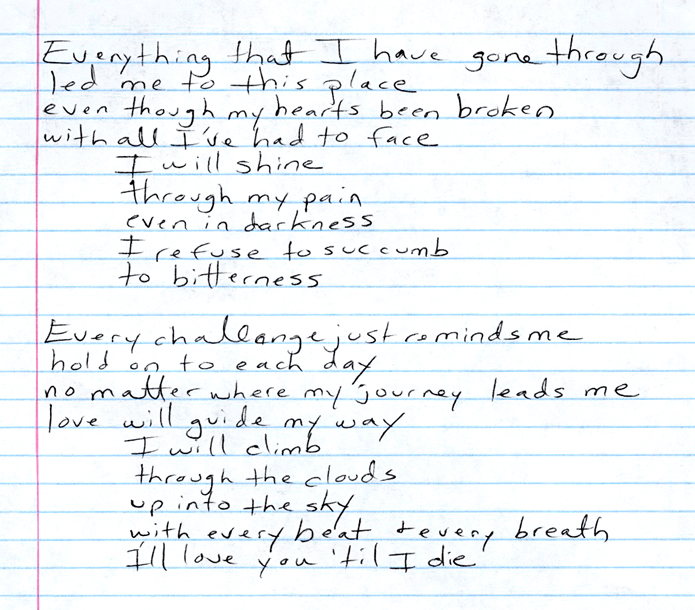 Everything that I have gone through
led me to this place
even though my hearts been broken
with all I've had to face
I will shine
through my pain
even in darkness
I refuse to succumb
to bitterness
Every challange just reminds me
hold on to each day
no matter where my journey leads me
love will guide my way
I will climb
through the clouds
up into the sky
with every beat & every breath
I'll love you 'til I die